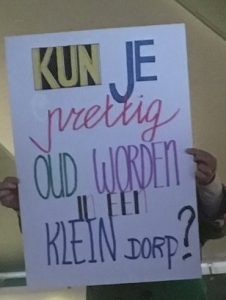 KUN JE
prettig
OUD WORDEN
IN EEN
KLEIN DORP?